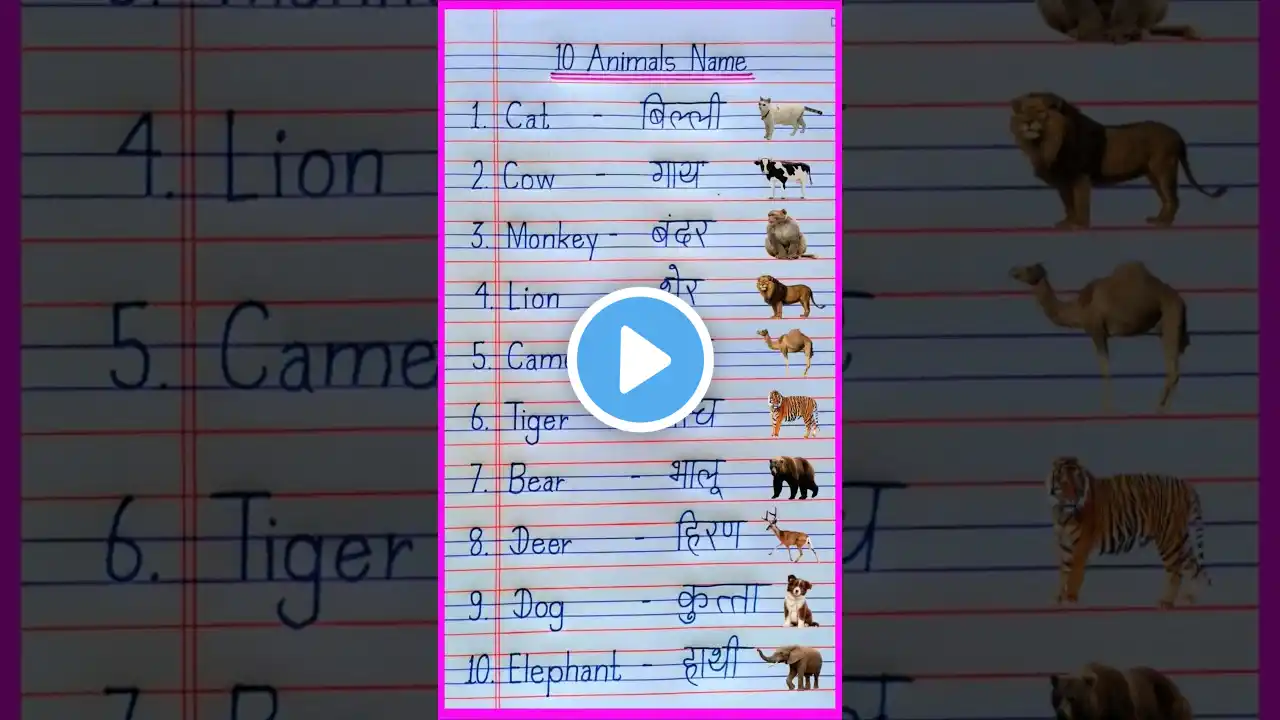 10 Animals Name
1. Cat - बिल्ली
2. Cow - गाय
3. Monkey - बंदर
4. Lion शेर
5.
6. Tiger
7. Bear - भालू
8. Deer - हिरण
9. Dog - कुत्ता
10. Elephant - हाथी
4. Lion
5.
6. Tiger